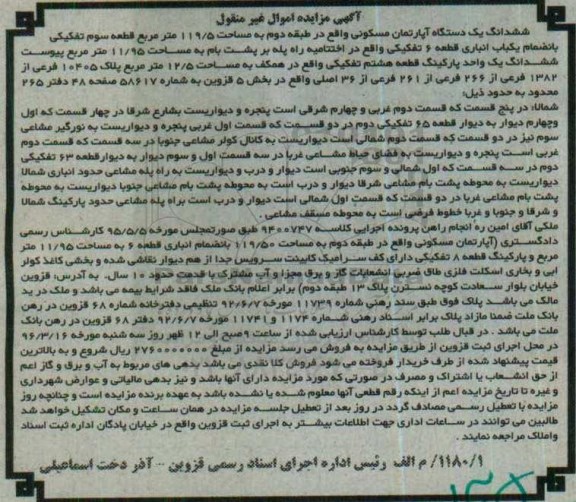 آگهی مزایده اموال غیر منقول
ششدانگ یک دستگاه آپارتمان مسکونی واقع در طبقه دوم به مساحت ۱۱۹/۵ متر مربع قطعه سوم تفکیکی
بانضمام یکباب انباری قطعه ۶ تفکیکی واقع در اختتامیه راه پله بر پشت بام به مساحت ۱۱/۹۵ متر مربع پیوست
ششدانگ یک واحد پارکینگ قطعه هشتم تفکیکی واقع در همکف به مساحت ۱۲/۵ متر مربع پلاک ۱۰۴۰۵ فرعی از
۱۳۸۲ فرعی از ۲۶۶ فرعی از ۲۶۱ فرعی از ۳۶ اصلی واقع در بخش ۵ قزوین به شماره ۵۸۶۱۷ صفحه ۴۸ دفتر ۲۶۵
محدود به حدود ذیل:
شمالا، در پنج قسمت که قسمت دوم غربی و چهارم شرقی است پنجره و دیواریست بشارع شرقا در چهار قسمت که اول
وچهارم دیوار به دیوار قطعه ۶۵ تفکیکی دوم در دو قسمت که قسمت اول غربی پنجره و دیواریست به نورگیر مشاعی
سوم نیز در دو قسمت که قسمت دوم شمالی است دیواریست به کانال کولر مشاعی جنوبا در سه قسمت که قسمت دوم
غربی است پنجره و دیواریست به فضای حیاط مشاعی غربا در سه قسمت اول و سوم دیوار به دیوار قطعه ۶۳ تفکیکی
دوم در سه قسمت که اول شمالی و سوم جنوبی است دیوار و درب و دیواریست به راه پله مشاعی حدود انباری شمالا
دیواریست به محوطه پشت بام مشاعی شرقا دیوار و درب است به محوطه پشت بام مشاعی جنوبا دیواریست به محوطه
پشت بام مشاعی غربا در دو قسمت که قسمت اول شمالی است دیوار و درب است براه پله مشاعی حدود پارکینگ شمالا
و شرقا و جنوبا و غربا خطوط فرضی است به محوطه مسقف مشاعی.
ملکی آقای امین ره انجام راهن پرونده اجرایی کلاسه ۹۴۰۰۷۴۷ طبق صورتمجلس مورخه ۹۵/۵/۵ کارشناس رسمی
دادگستری (آپارتمان مسکونی واقع در طبقه دوم به مساحت ۱۱۹/۵۰ بانضمام انباری قطعه ۶ به مساحت ۱۱/۹۵ متر
مربع و پارکینگ قطعه ۸ تفکیکی دارای کف سرامیک کابینت سرویس جدا از هم دیوار نقاشی شده و بخشی کاغذ کولر
ابی و بخاری اسکلت فلزی طاق ضربی انشعابات گاز و برق مجزا و آب مشترک با قدمت حدود ۱۰ سال. به آدرس: قزوین
خیابان بلوار سعادت کوچه نسترن پلاک ۱۳ طبقه دوم) برابر اعلام بانک ملک فاقد شرایط بیمه می باشد و ملک در ید
مالک می باشد پلاک فوق طبق سند رهنی شماره ۱۱۷۳۹ مورخه ۹۲/۶/۷ تنظیمی دفترخانه شماره ۶۸ قزوین در رهن
بانک ملت ضمنا مازاد پلاک برابر اسناد رهنی شماره ۱۱۷۴ و ۱۱۷۴۱ مورخه ۹۲/۶/۷ دفتر ۶۸ قزوین در رهن بانک
ملت می باشد. در قبال طلب توسط کارشناس ارزیابی شده از ساعت ۹ صبح الی ۱۲ ظهر روز سه شنبه مورخه ۹۶/۳/۱۶
در محل اجرای ثبت قزوین از طریق مزایده به فروش می رسد مزایده از مبلغ ۲۷۶۰۰۰۰۰۰۰ ریال شروع و به بالاترین
قیمت پیشنهاد شده از طرف خریدار فروخته می شود فروش کلا نقدی می باشد بدهی های مربوط به آب و برق و گاز اعم
از حق انشعاب یا اشتراک و مصرف در صورتی که مورد مزایده دارای آنها باشد و نیز بدهی مالیاتی و عوارض شهرداری
و غیره تا تاریخ مزایده اعم از اینکه رقم قطعی آنها معلوم شده یا نشده باشد به عهده برنده مزایده است و چنانچه روز
مزایده با تعطیل رسمی مصادف گردد در روز بعد از تعطیل جلسه مزایده در همان ساعت و مکان تشکیل خواهد شد
طالبین می توانند در ساعات اداری جهت اطلاعات بیشتر به اجرای ثبت قزوین واقع در خیابان پادگان اداره ثبت اسناد
واملاک مراجعه نمایند.
۱۱۸۰/۱/ م الف رئیس اداره اجرای اسناد رسمی قزوین - آذر دخت اسماعیلی